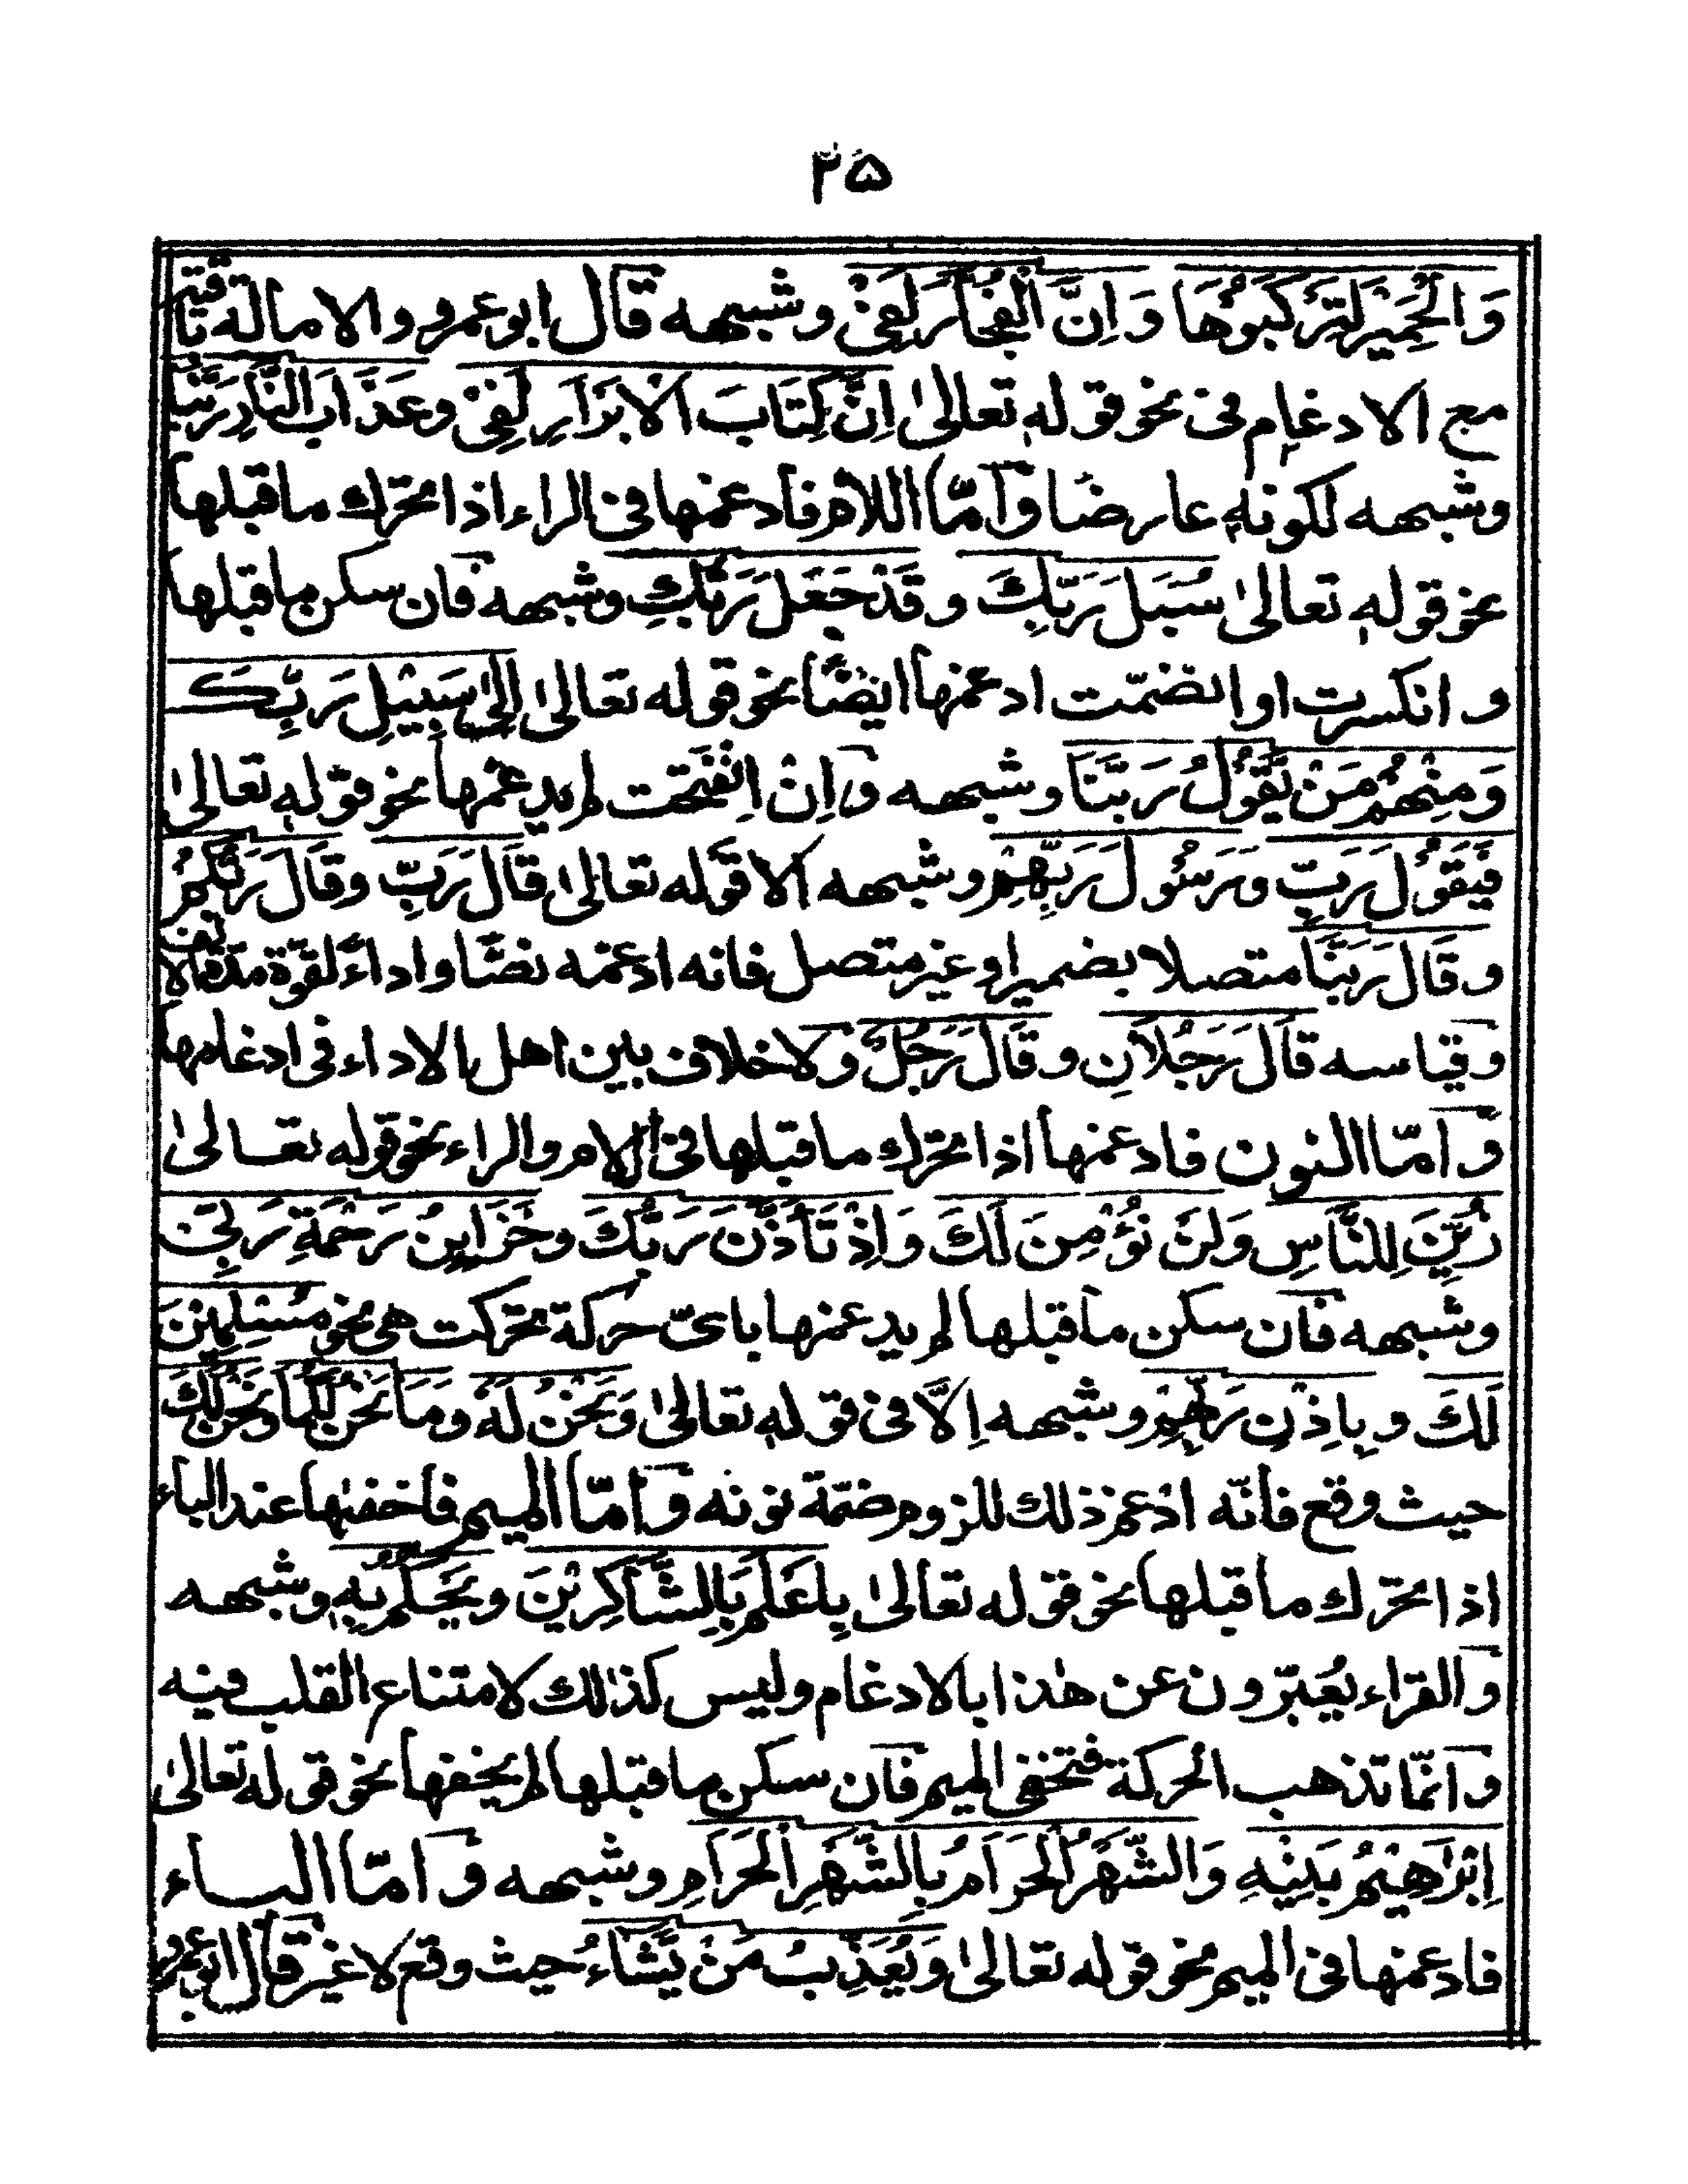 ۲۵
وَالْحَمِيْرَ لِتَرْكَبُوْهَا وَ اِنَّ الْفُجَّارَ لَفِىْ وشبهه قال ابو عمرو والامالة باقية
مع الادغام فى نحو قوله تعالىٰ اِنَّ كِتَابَ الْاَبْرَارِ لَفِىْ وعَذَابَ النَّارِ رَبَّنَا
وشبهه لكونه عارضا وَاَمّا اللام فادغمها فى الراء اذا تحرّك ماقبلها
نحو قوله تعالىٰ سُبُلَ رَبِّكِ وقَدْ جَعَلَ رَبُّكِ وشبهه فان سكن ماقبلها
و انكسرت او انضمّت ادغمها ايضًا نحو قوله تعالىٰ اِلىٰ سَبِيْلِ رَبِّكَ
وَمِنْهُمْ مَنْ يَّقُوْلُ رَبَّنَا وشبهه وَاِنْ انْفَتحت لم يدغمها نحو قوله تعالىٰ
فَيَقُوْلَ رَبِّ وَرَسُوْلَ رَبِّهِمْ وشبهه الا قوله تعالىٰ قَالَ رَبِّ وقَالَ رَبُّكُمْ
وقَالَ رَبُّنَا متصلا بضمير او غير متصل فانه ادغمه نصًّا واداءً لقوّة مدّة الالف
وقياسه قَالَ رَجُلَانِ وقَالَ رَجُلٌ ولا خلاف بين اهل الاداء فى ادغامها
وَ امّا النون فادغمها اذا تحرّك ماقبلها فى اللام والراء نحو قوله تعالىٰ
زُيِّنَ لِلنَّاسِ وَلَنْ نُؤْمِنَ لَكَ وَاِذْ تَأَذَّنَ رَبُّكَ وخَزَايِنُ رَحْمَةِ رَبِّىْ
وشبهه فان سكن ماقبلها لم يدغمها باىّ حركة تحركت هى نحو مُسْلِمَيْنِ
لَكَ و بِاِذْنِ رَبِّهِمْ وشبهه اِلَّا فى قوله تعالىٰ وَنَحْنُ لَهُ ومَا نَحْنُ لَكُمَا ونَحْنُ لَكَ
حيث وقع فانّه ادْغم ذلك للزوم ضمّة نونه وَ امّا الميم فاخفٰها عند الباء
اذا تحرّك ماقبلها نحو قوله تعالىٰ بِاَعْلَمَ بِالشَّاكِرِيْنَ ويَحْكُمُ بِهِ وشبهه
وَ القرّاء يُعَبّرون عن هٰذا بالادغام وليس كذٰلك لامتناع القلب فيه
وَ انّما تذهب الحركة فتخفى الميم فان سكن ماقبلها لم يخفها نحو قوله تعالىٰ
اِبْرَاهِيْمُ بَنِيْهِ وَالشَّهْرُ الْحَرَامُ بِالشَّهْرِ الْحَرَامِ وشبهه وَ امّا الباء
فادغمها فى الميم نحو قوله تعالىٰ وَيُعَذِّبُ مَنْ يَّشَاءُ حيث وقع لا غير قال ابو عمرو